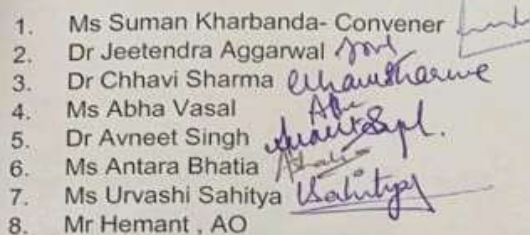 1. Ms Suman Kharbanda- Convener
2. Dr Jeetendra Aggarwal
3. Dr Chhavi Sharma
4. Ms Abha Vasal
5. Dr Avneet Singh
6. Ms Antara Bhatia
7. Ms Urvashi Sahitya Sahitya
8. Mr Hemant , AO